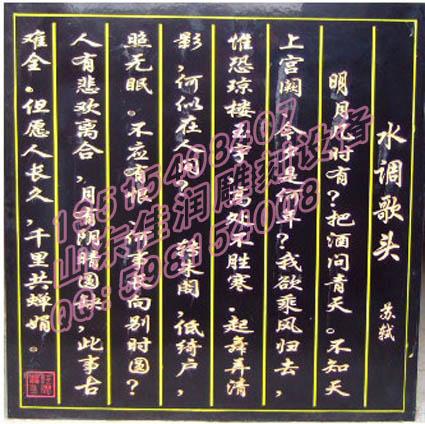 水调歌头
苏轼
明月几时有?把酒问青天。不知天
上宫阙,今夕是何年?我欲乘风归去,
惟恐琼楼玉宇,高处不胜寒.起舞弄清
影,何似在人间? 转朱阁,低绮户,
照无眠.不应有恨,何事长向别时圆?
人有悲欢离合,月有阴晴圆缺,此事古
难全。但愿人长久,千里共蝉娟。
山东佳润雕刻设备
QQ:598154008